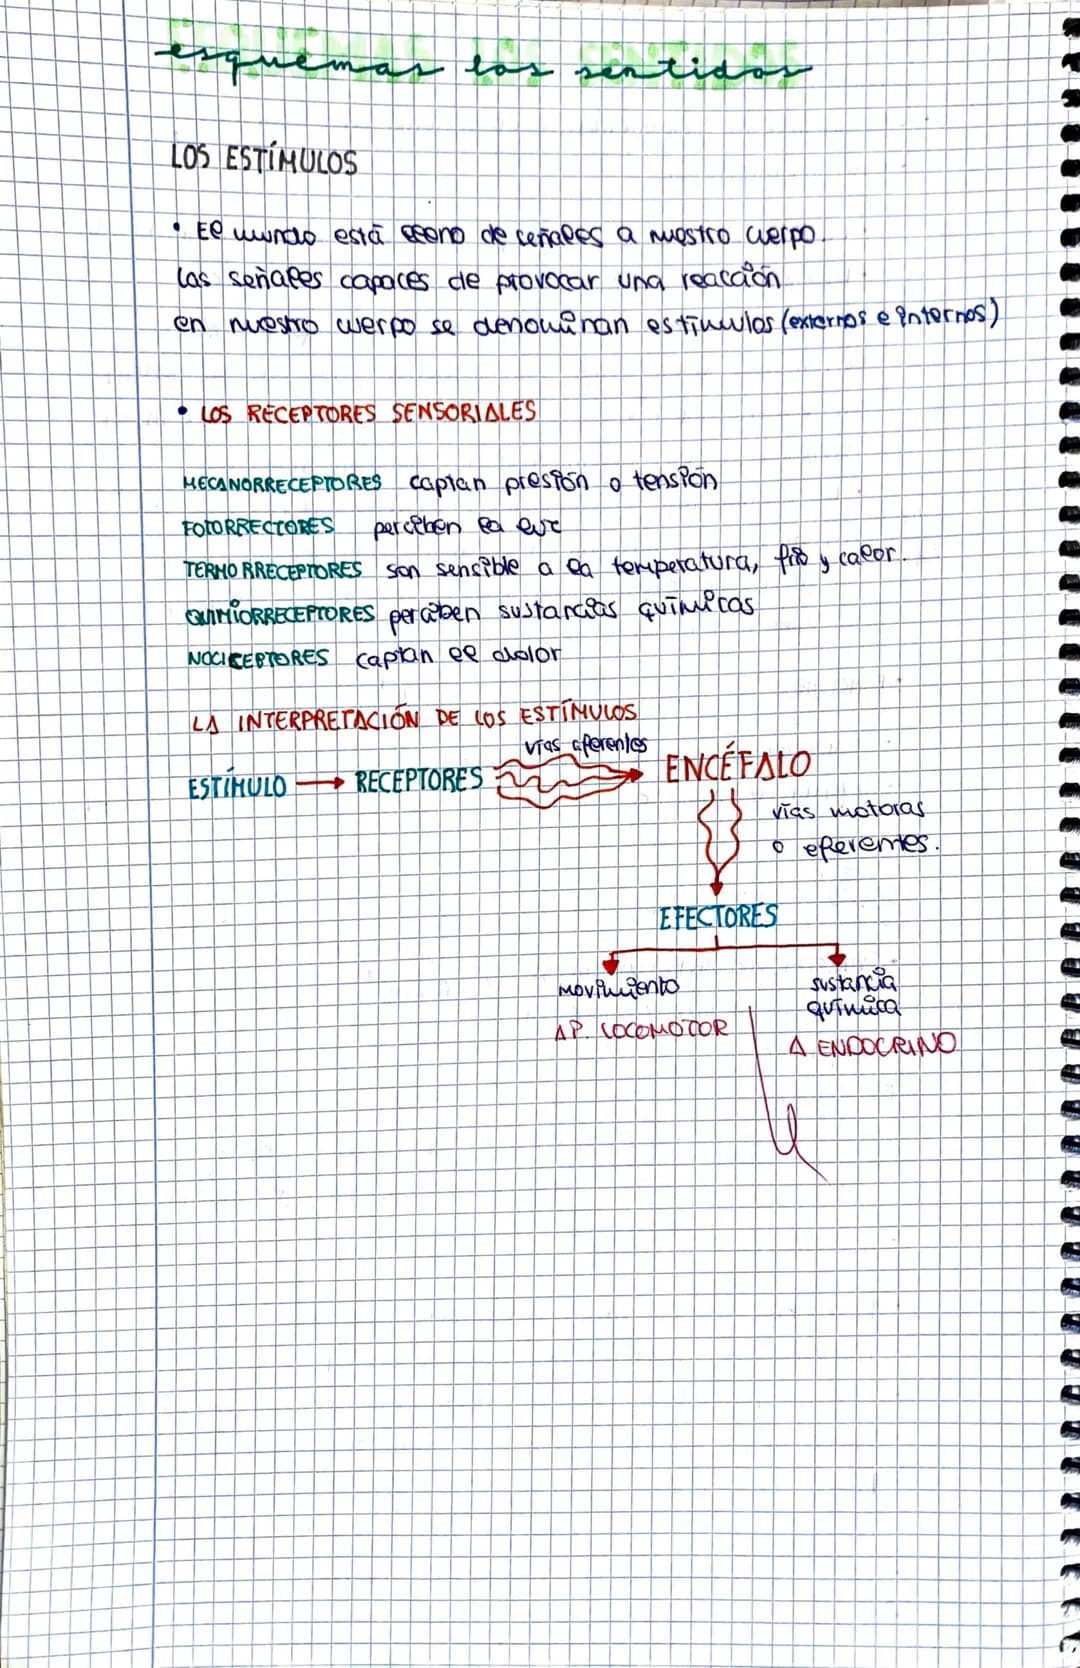 esquemas los sentidos
LOS ESTÍMULOS
• El mundo está lleno de señales a nuestro cuerpo.
Las señales capaces de provocar una reacción
en nuestro cuerpo se denominan estímulos (externos e internos)
• LOS RECEPTORES SENSORIALES
MECANORRECEPTORES captan presión o tensión
FOTORRECTORES perciben la luz
TERMORRECEPTORES son sensible a la temperatura, frío y calor.
QUIMIORRECEPTORES perciben sustancias químicas
NOCICEPTORES captan el dolor
LA INTERPRETACIÓN DE LOS ESTÍMULOS
vías aferentes
ESTÍMULO → RECEPTORES → ENCÉFALO
vías motoras
o eferentes.
EFECTORES
movimiento
AP. LOCOMOTOR
sustancia
química
A ENDOCRINO